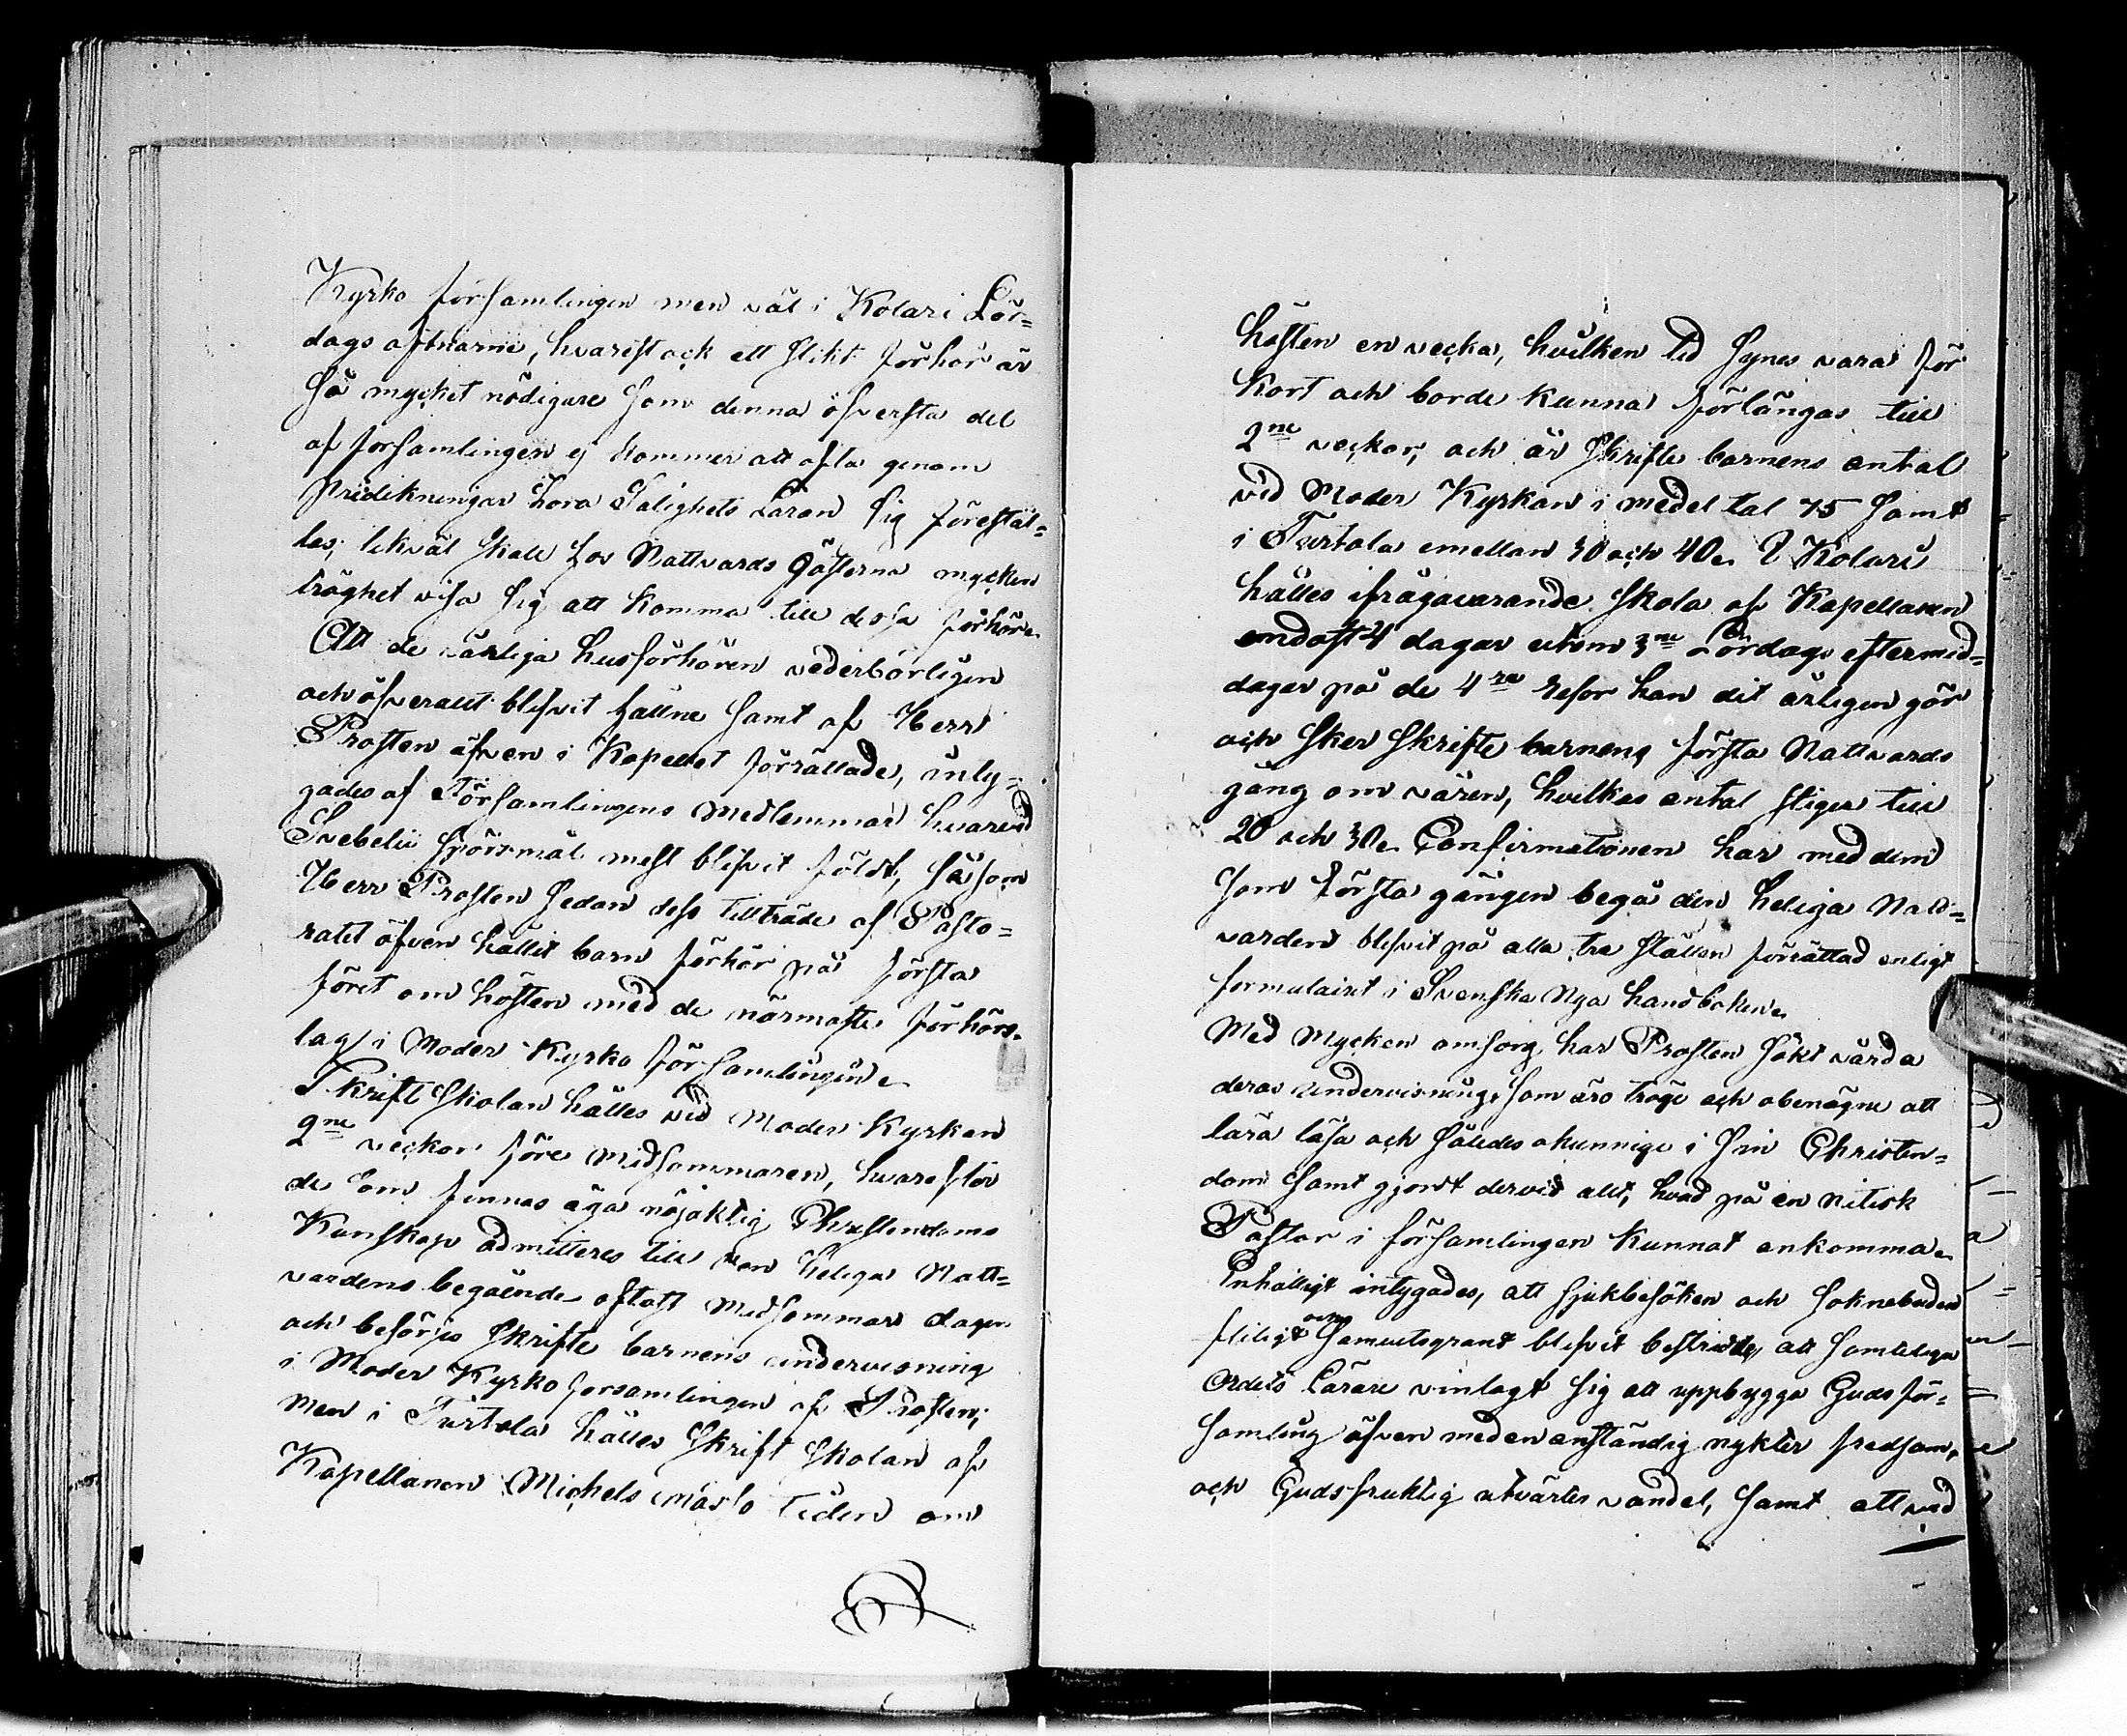 Kyrko församlingen men väl i Kolari Lör=
dags aftnarne, hvarest ock ett slikt förhör är
så mycket nödigare som denna öfversta del
af församlingen ej kommer att ofta genom
Predikningar höra Salighets Läran sig förestäl=
las; likväl skall hos Nattvards Gästerna mycken
tröghet visa sig att komma till dessa förhör.
Att de årliga husförhören vederbörligen
och öfverallt blifvit hållne samt af Herr
Prosten äfven i Kapellet förrättade, inty=
gades af Församlingens Medlemmar hvarvid
Svebelii spörsmål mest blifvit följdt, såsom
Herr Prosten sedan dess tillträde af Pasto=
ratet äfven hållit barn förhör på första
föret om hösten med de närmaste förhörs-
lag i Moder Kyrko församlingen.
Skrift Skolan hålles vid Moder Kyrkan
2ne veckor före Midsommaren, hvarefter
de som finnas äga nöjaktig Christendoms
Kunskap admitteras till den heliga Natt=
vardens begående oftast Midsommars dagen
och besörjes Skrifte barnens undervisning
i Moder Kyrko församlingen af Prosten;
men i Turtola hålles Skrift Skolan af
Kapellanen Michels mässo tiden om
hösten en vecka, hvilken tid synes vara för
kort och borde kunna förlängas till
2ne veckor, och är Skrifte barnens antal
vid Moder Kyrkan i medel tal 75 samt
i Turtola emellan 30 och 40. I Kolari
hålles ifrågavarande Skola af Kapellanen
endast 4 dagar utom 3ne Lördags eftermid=
dagar på de 4ra resor han dit årligen gör
och sker Skrifte barnens första Nattvards
gång om våren, hvilkas antal stiger till
20 och 30. Confirmationen har med dem
som första gången begå den heliga Natt=
varden blifvit på alla tre ställen förrättad enligt
formulairet i Svenska Nya handboken.
Med Mycken omsorg har Prosten sökt vårda
deras undervisning, som äro tröge och obenägne att
lära läsa och således okunnige i sin Christen=
dom samt gjordt dervid allt, hvad på en nitisk
Pastor i församlingen kunnat ankomma.
Enhälligt intygades, att sjukbesöken och soknebuden
fliligt och samvetsgrant blifvit bestridde, att samtelige
Ordets Lärare vinlagt sig att uppbygga Guds för=
samling äfven med en anständig nykter fredsam,
och Gudsfruktig utvärtes vandel, samt att vid